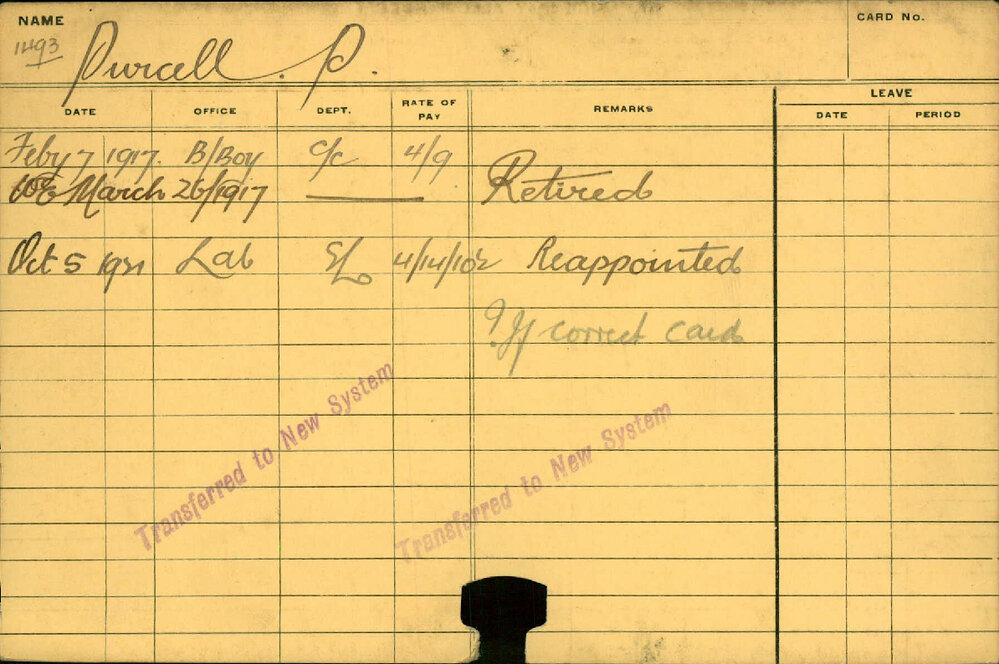 NAME
CARD No.
1493
Purcell. P.
LEAVE
DATE OFFICE DEPT. RATE OF PAY REMARKS DATE PERIOD
Feby 7 1917. B/Boy C/C 4/9
March 26/1917 Retired
Oct 5 1921 Lab 4/14/10½ Reappointed
? If correct card
Transferred to New System
Transferred to New System